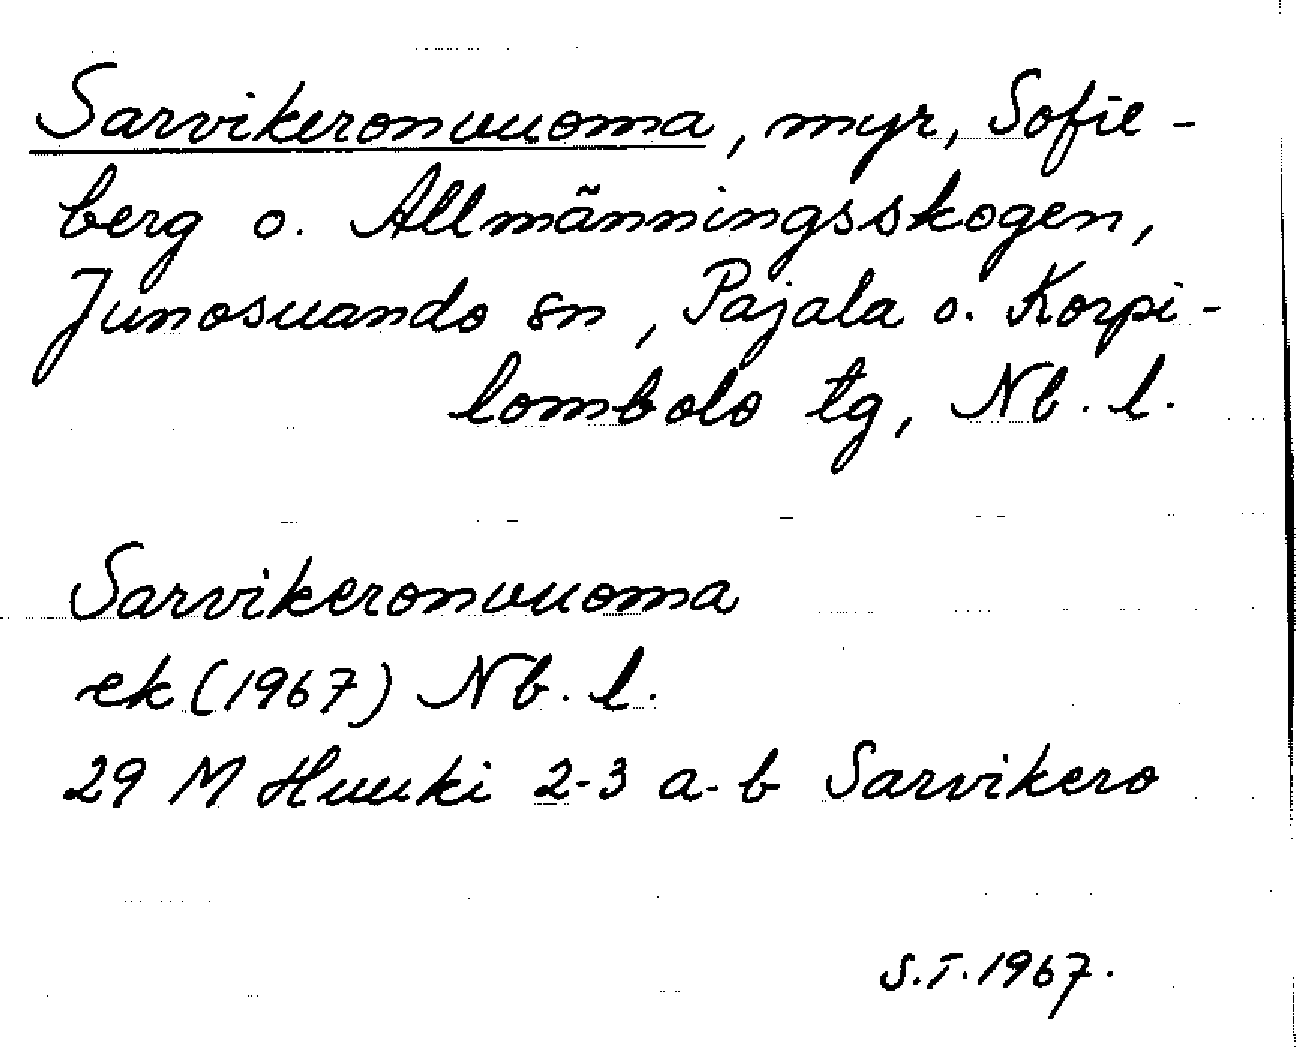 Sarvikeronvuoma, myr, Sofie-
berg o. Allmänningsskogen,
Junosuando sn, Pajala o. Korpi-
lombolo tg, Nb. l.
Sarvikeronvuoma
ek (1967) Nb. l.
29 M Huuki 2-3 a-b Sarvikero
S.T. 1967.